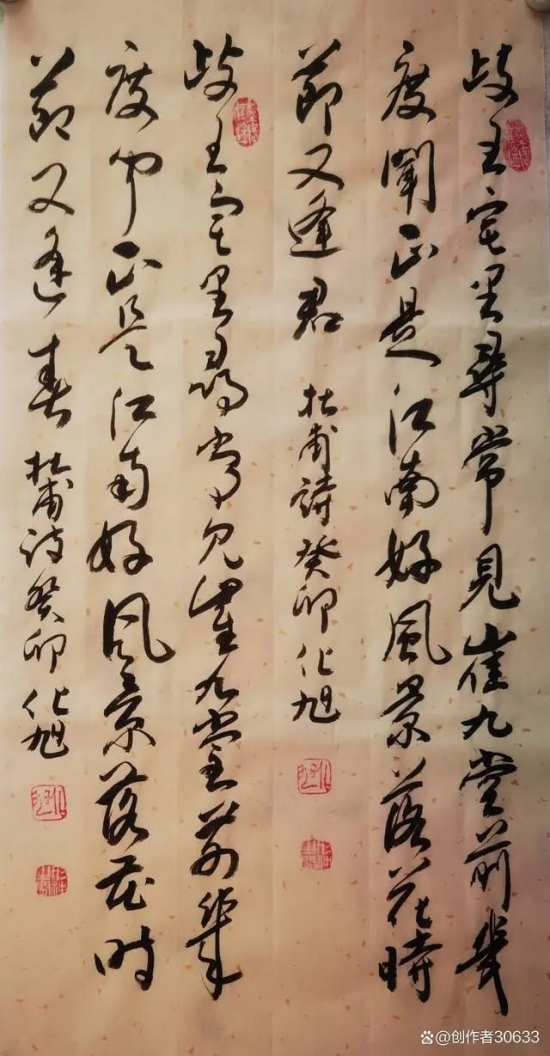 歧王宅里尋常見崔九堂前幾
度聞正是江南好風景落花時
節又逢君 杜甫詩癸卯化旭
歧王宅里尋常见崔九堂前幾
度闻正是江南好风景落花时
節又逢春 杜甫诗癸卯化旭
@创作者30633